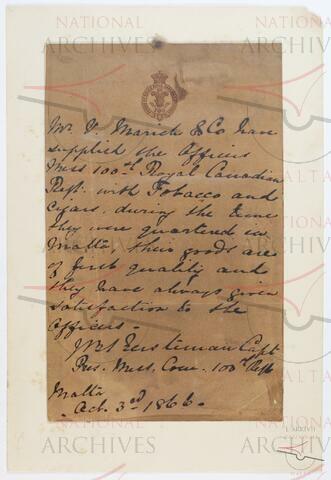 NATIONAL
ARCHIVES
Mr. V. Marich & Co have
supplied the Officers
Mess 100th Royal Canadian
Regt. with Tobacco and
cigars, during the time
they were quartered in
Malta, their goods are
of first quality and
they have always given
satisfaction to the
Officers -
Capt
Pres. Mess. Com. 100th Regt
Malta
Oct. 3rd 1866.
NATIONAL
ARCHIVES